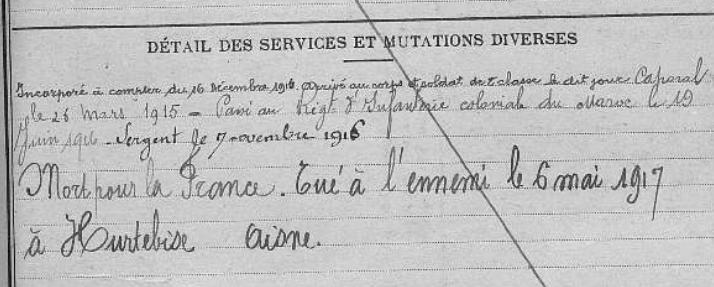 DÉTAIL DES SERVICES ET MUTATIONS DIVERSES
Incorporé à compter du 16 Décembre 1914. arrivé au corps et soldat de 2e classe le dit jour. Caporal
le 26 Mars 1915 - Passé au Régt d'Infanterie coloniale du Maroc le 19
Juin 1916 - Sergent le 7 novembre 1916
Mort pour la France. Tué à l'ennemi le 6 mai 1917
à Hurtebise Aisne.